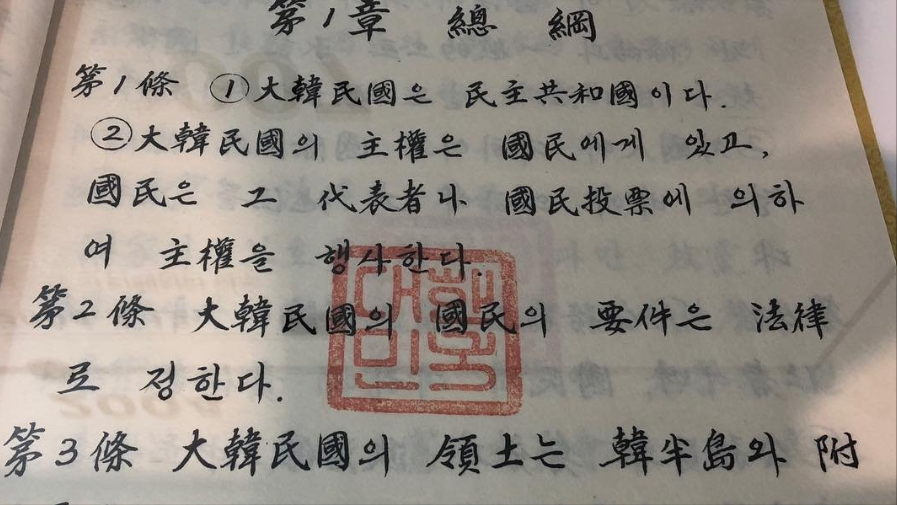 第1章 總綱
第1條 ①大韓民國은 民主共和國이다.
②大韓民國의 主權은 國民에게 있고,
國民은 그 代表者나 國民投票에 의하
여 主權을 행사한다.
第2條 大韓民國의 國民의 要件은 法律
로 정한다.
대한
민국
第3條 大韓民國의 領土는 韓半島와 附